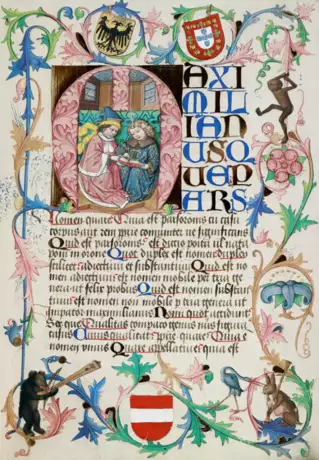 MAXI
MIL
IAN
USQ
UEP
ARS
Nomen quare Quia est pars oronis cu casu
corpus aut rem proprie comuniter ue significans
Quid est pars oronis est dictio posita ul nata
poni in orone Quot duplex est nomen duplex
scilicet adiectiuu et substantiuu Quid est no
men adiectiuu est nomen mobile per tria ge
nera ut felix probus Quid est nomen substan
tiuu est nomen non mobile per tria genera ut
imperator maximilianus Nomini quot accidunt
Sex que Qualitas comparatio genus numerus figura
casus Cuius qualitatis proprie quare Quia e
nomen unius Quare appellatiue quia est